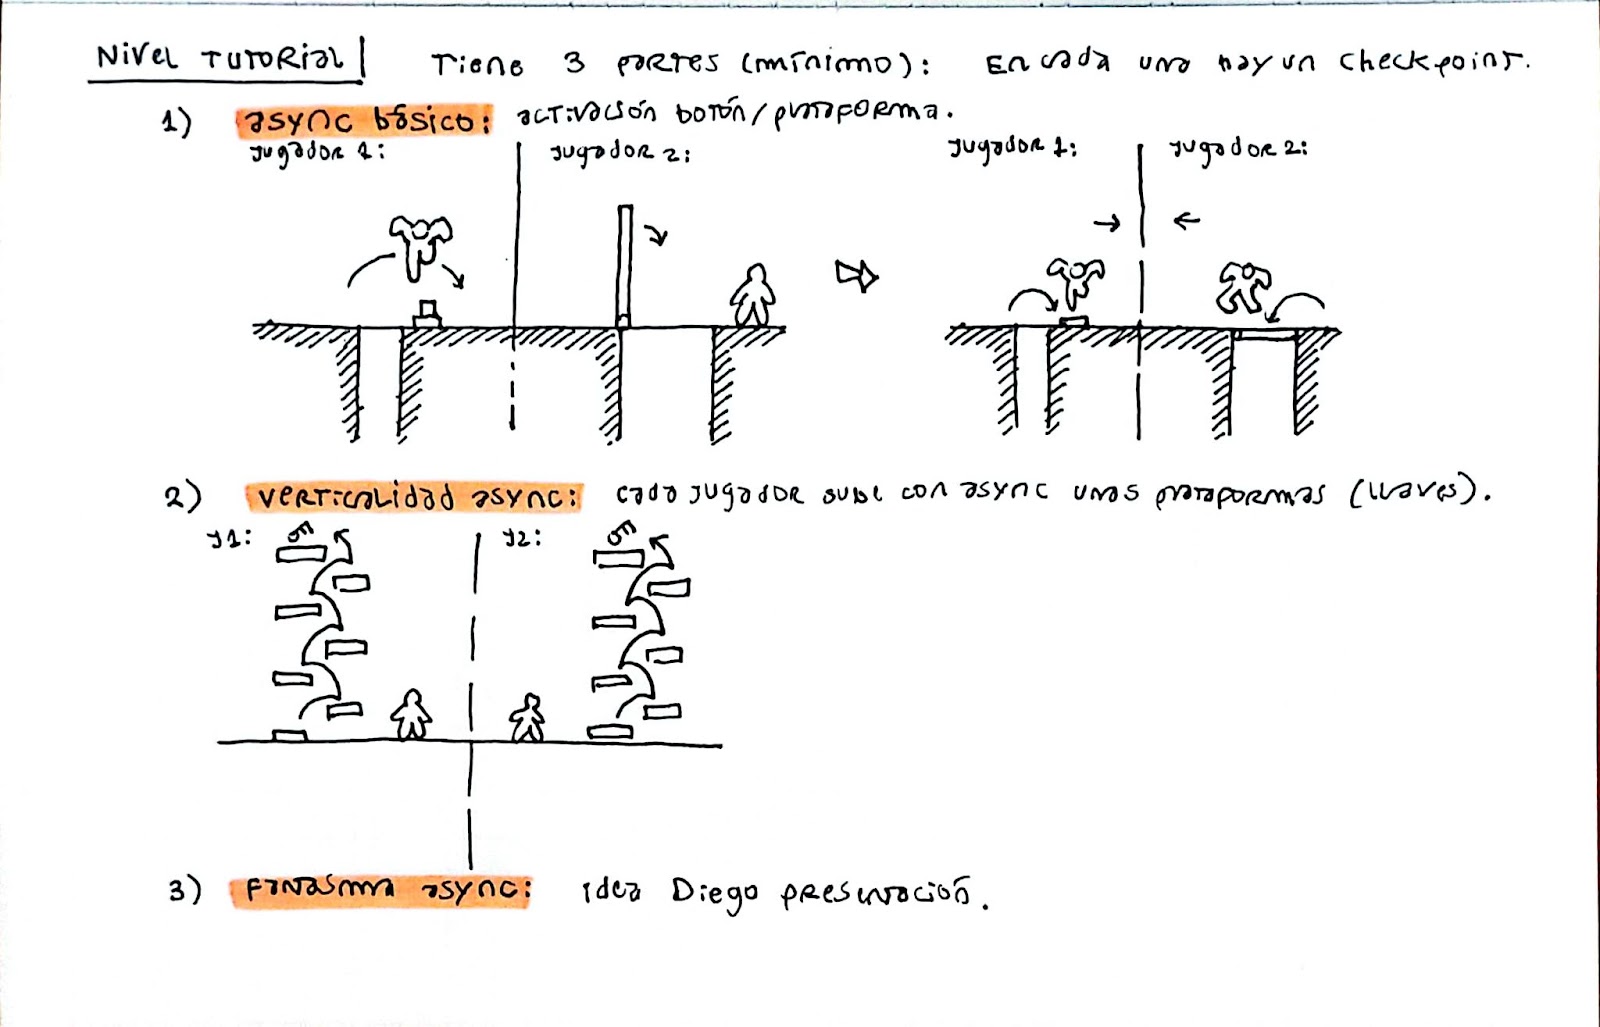 NIVEL TUTORIAL Tiene 3 partes (mínimo): En cada una hay un checkpoint.
1) async básico: activación botón/plataforma.
Jugador 1: Jugador 2: Jugador 1: Jugador 2:
2) verticalidad async: cada jugador sube con async unas plataformas (llaves).
J1: J2:
3) fantasma async: idea Diego presentación.